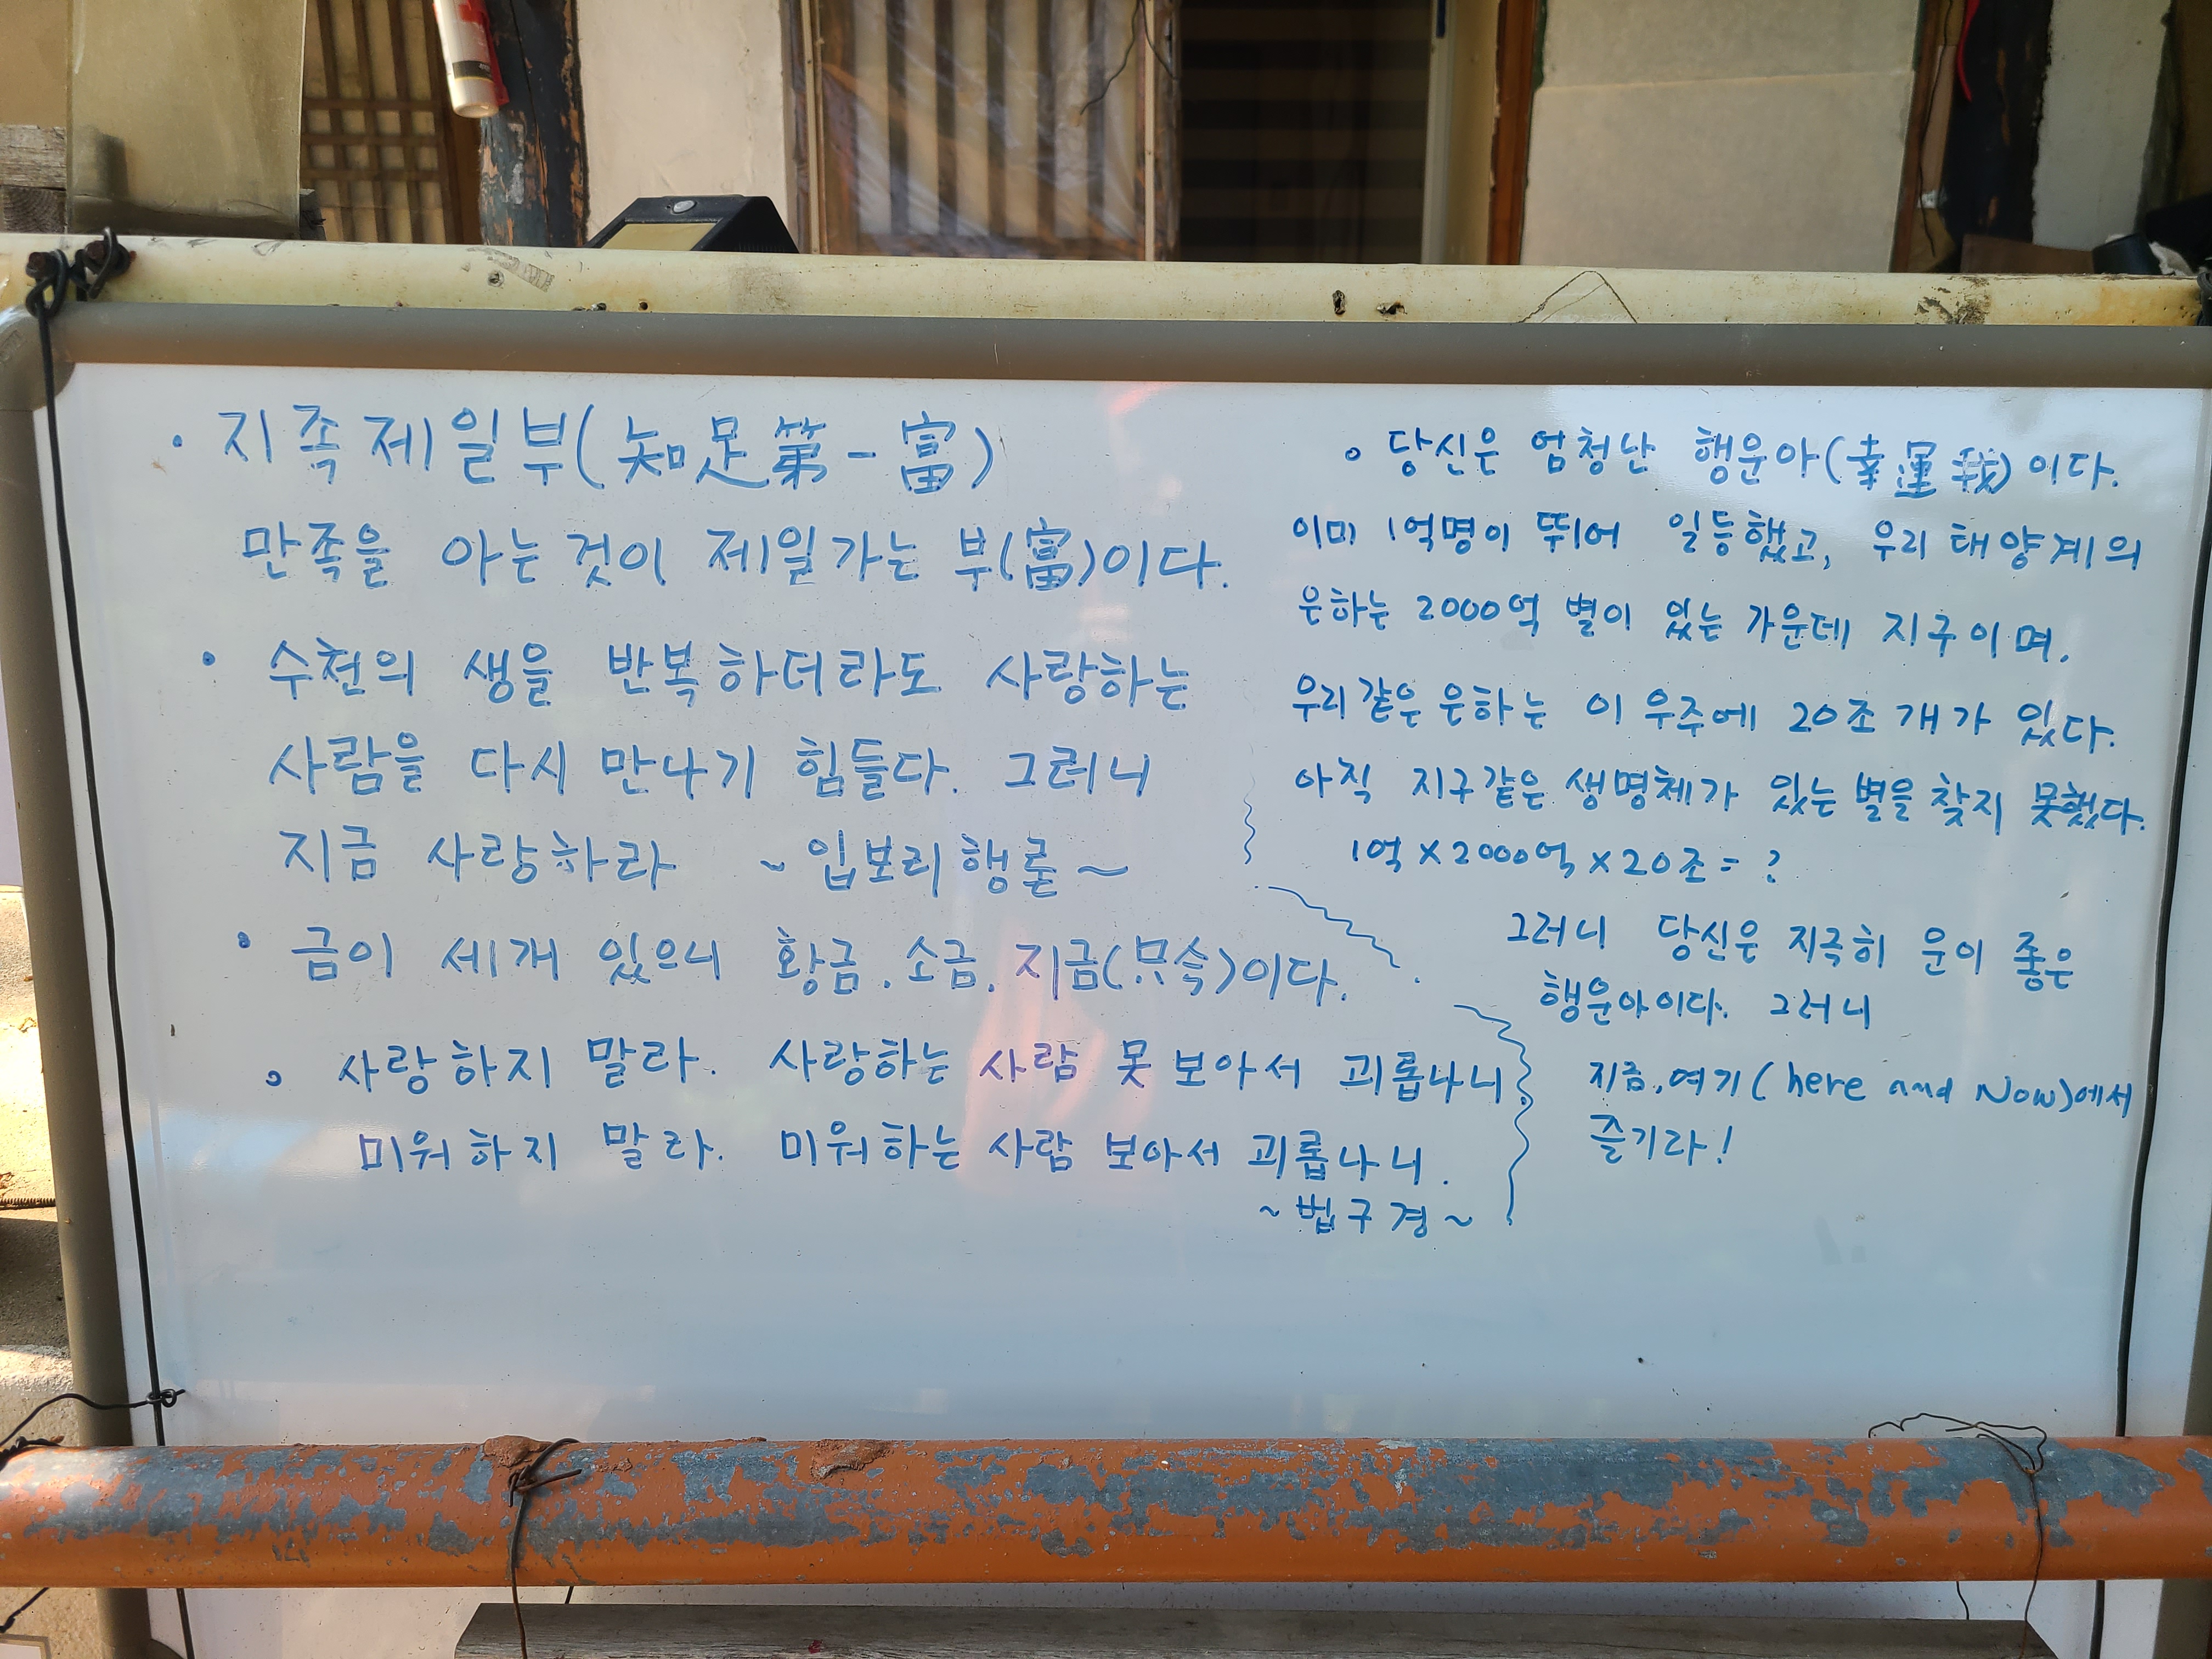 · 지족제일부(知足第一富)
만족을 아는것이 제일가는 부(富)이다.
· 수천의 생을 반복하더라도 사랑하는
사람을 다시 만나기 힘들다. 그러니
지금 사랑하라 ~입보리행론~
· 금이 세개 있으니 황금. 소금. 지금(只今)이다.
· 사랑하지 말라. 사랑하는 사람 못보아서 괴롭나니.
미워하지 말라. 미워하는 사람 보아서 괴롭나니.
~법구경~
· 당신은 엄청난 행운아(幸運我)이다.
이미 1억명이 뛰어 일등했고, 우리 태양계의
은하는 2000억 별이 있는 가운데 지구이며.
우리같은 은하는 이 우주에 20조개가 있다.
아직 지구같은 생명체가 있는 별을 찾지 못했다.
1억×2000억×20조=?
그러니 당신은 지극히 운이 좋은
행운아이다. 그러니
지금,여기(here and Now)에서
즐기라!